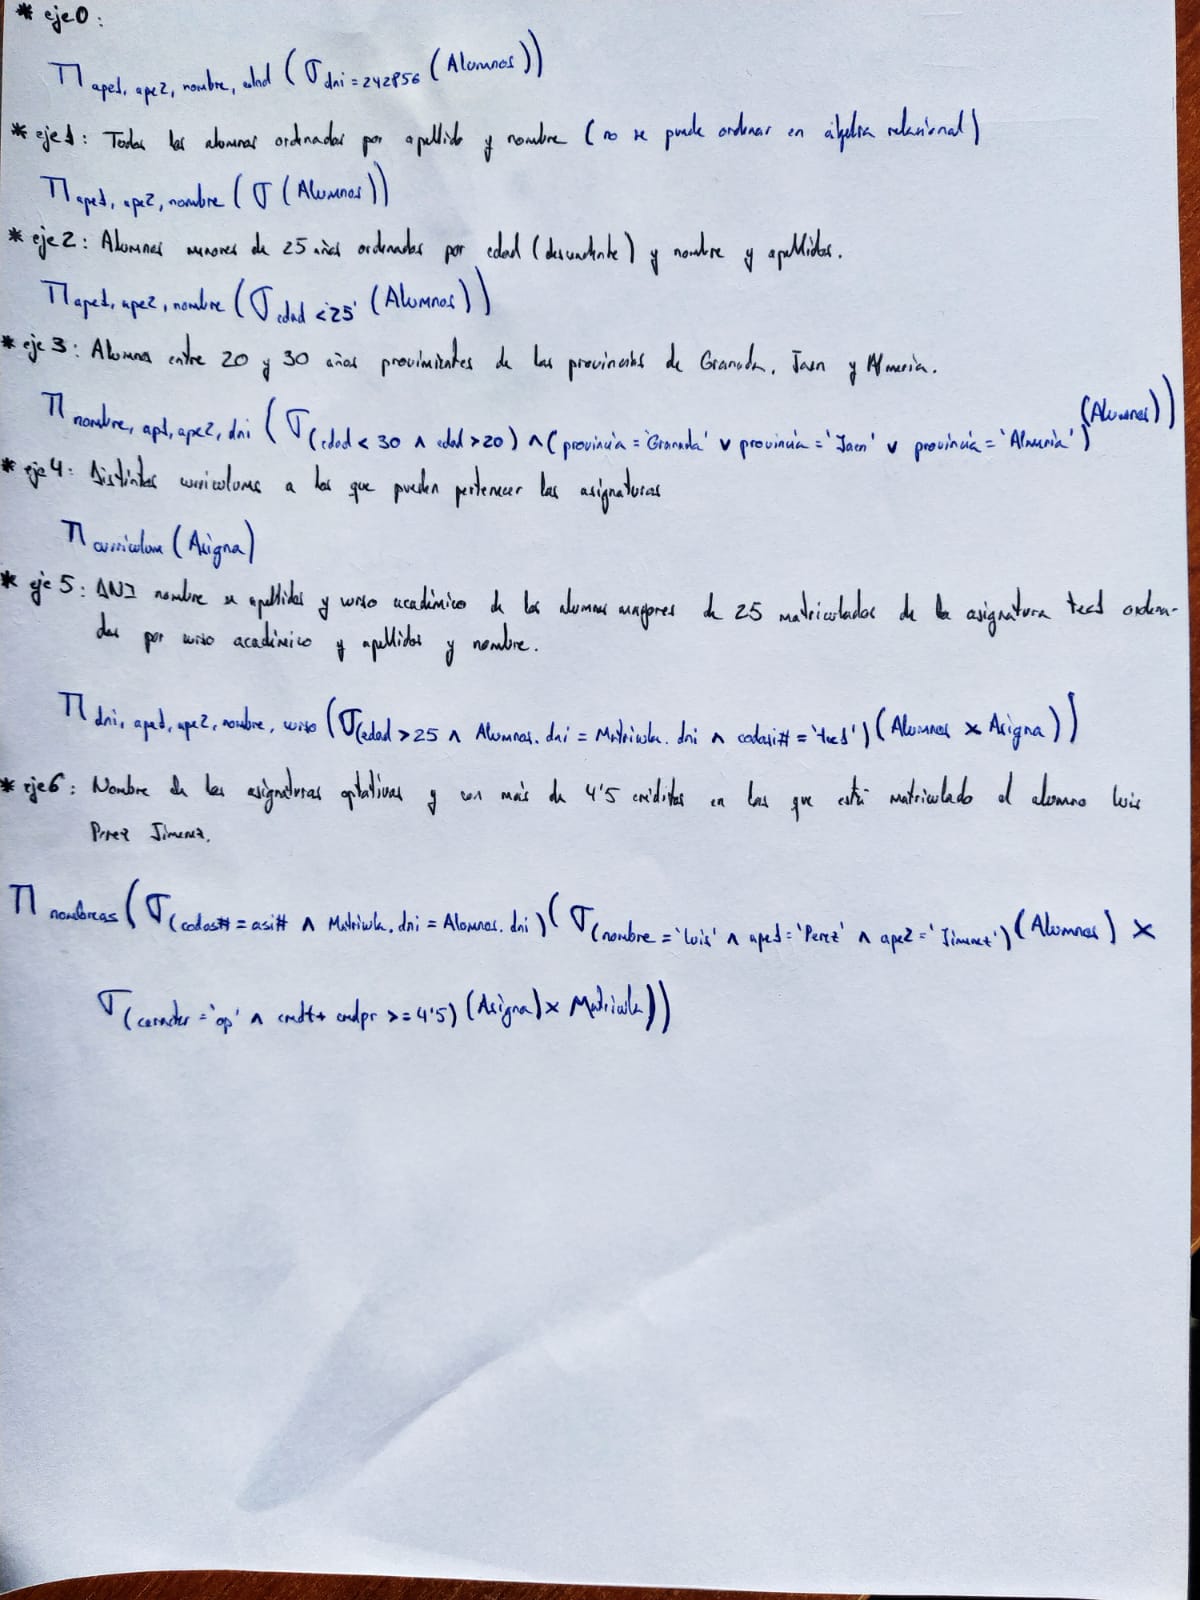 * eje0:
Π ape1, ape2, nombre, edad (σ dni=242856 (Alumnos))
* eje1: Todos los alumnos ordenados por apellido y nombre (no se puede ordenar en álgebra relacional)
Π ape1, ape2, nombre (σ (Alumnos))
* eje2: Alumnos menores de 25 años ordenados por edad (descendente) y nombre y apellidos.
Π ape1, ape2, nombre (σ edad <'25' (Alumnos))
* eje 3: Alumnos entre 20 y 30 años provinientes de las provincias de Granada, Jaen y Almeria.
Π nombre, ap1, ape2, dni (σ (edad < 30 ∧ edad >20) ∧ (provincia = 'Granada' ∨ provincia = 'Jaen' ∨ provincia = 'Almeria') (Alumnos))
* eje4: Distintos curriculums a los que pueden pertenecer las asignaturas
Π curriculum (Asigna)
* eje 5: DNI nombre apellidos y curso académico de los alumnos mayores de 25 matriculados de la asignatura tec1 ordena-
dos por curso académico y apellidos y nombre.
Π dni, ape1, ape2, nombre, curso (σ(edad >25 ∧ Alumnos. dni = Matricula. dni ∧ codasi# = 'tec1') (Alumnos × Asigna))
* eje6: Nombre de las asignaturas optativas y con más de 4'5 créditos en las que está matriculado el alumno Luis
Perez Jimenez.
Π nombreas (σ (codas# = asi# ∧ Matricula. dni = Alumnos. dni) (σ (nombre = 'Luis' ∧ ape1 = 'Perez' ∧ ape2 = 'Jimenez') (Alumnos) ×
σ (caracter = 'op' ∧ credt + credpr >= 4'5) (Asigna) × Matricula))